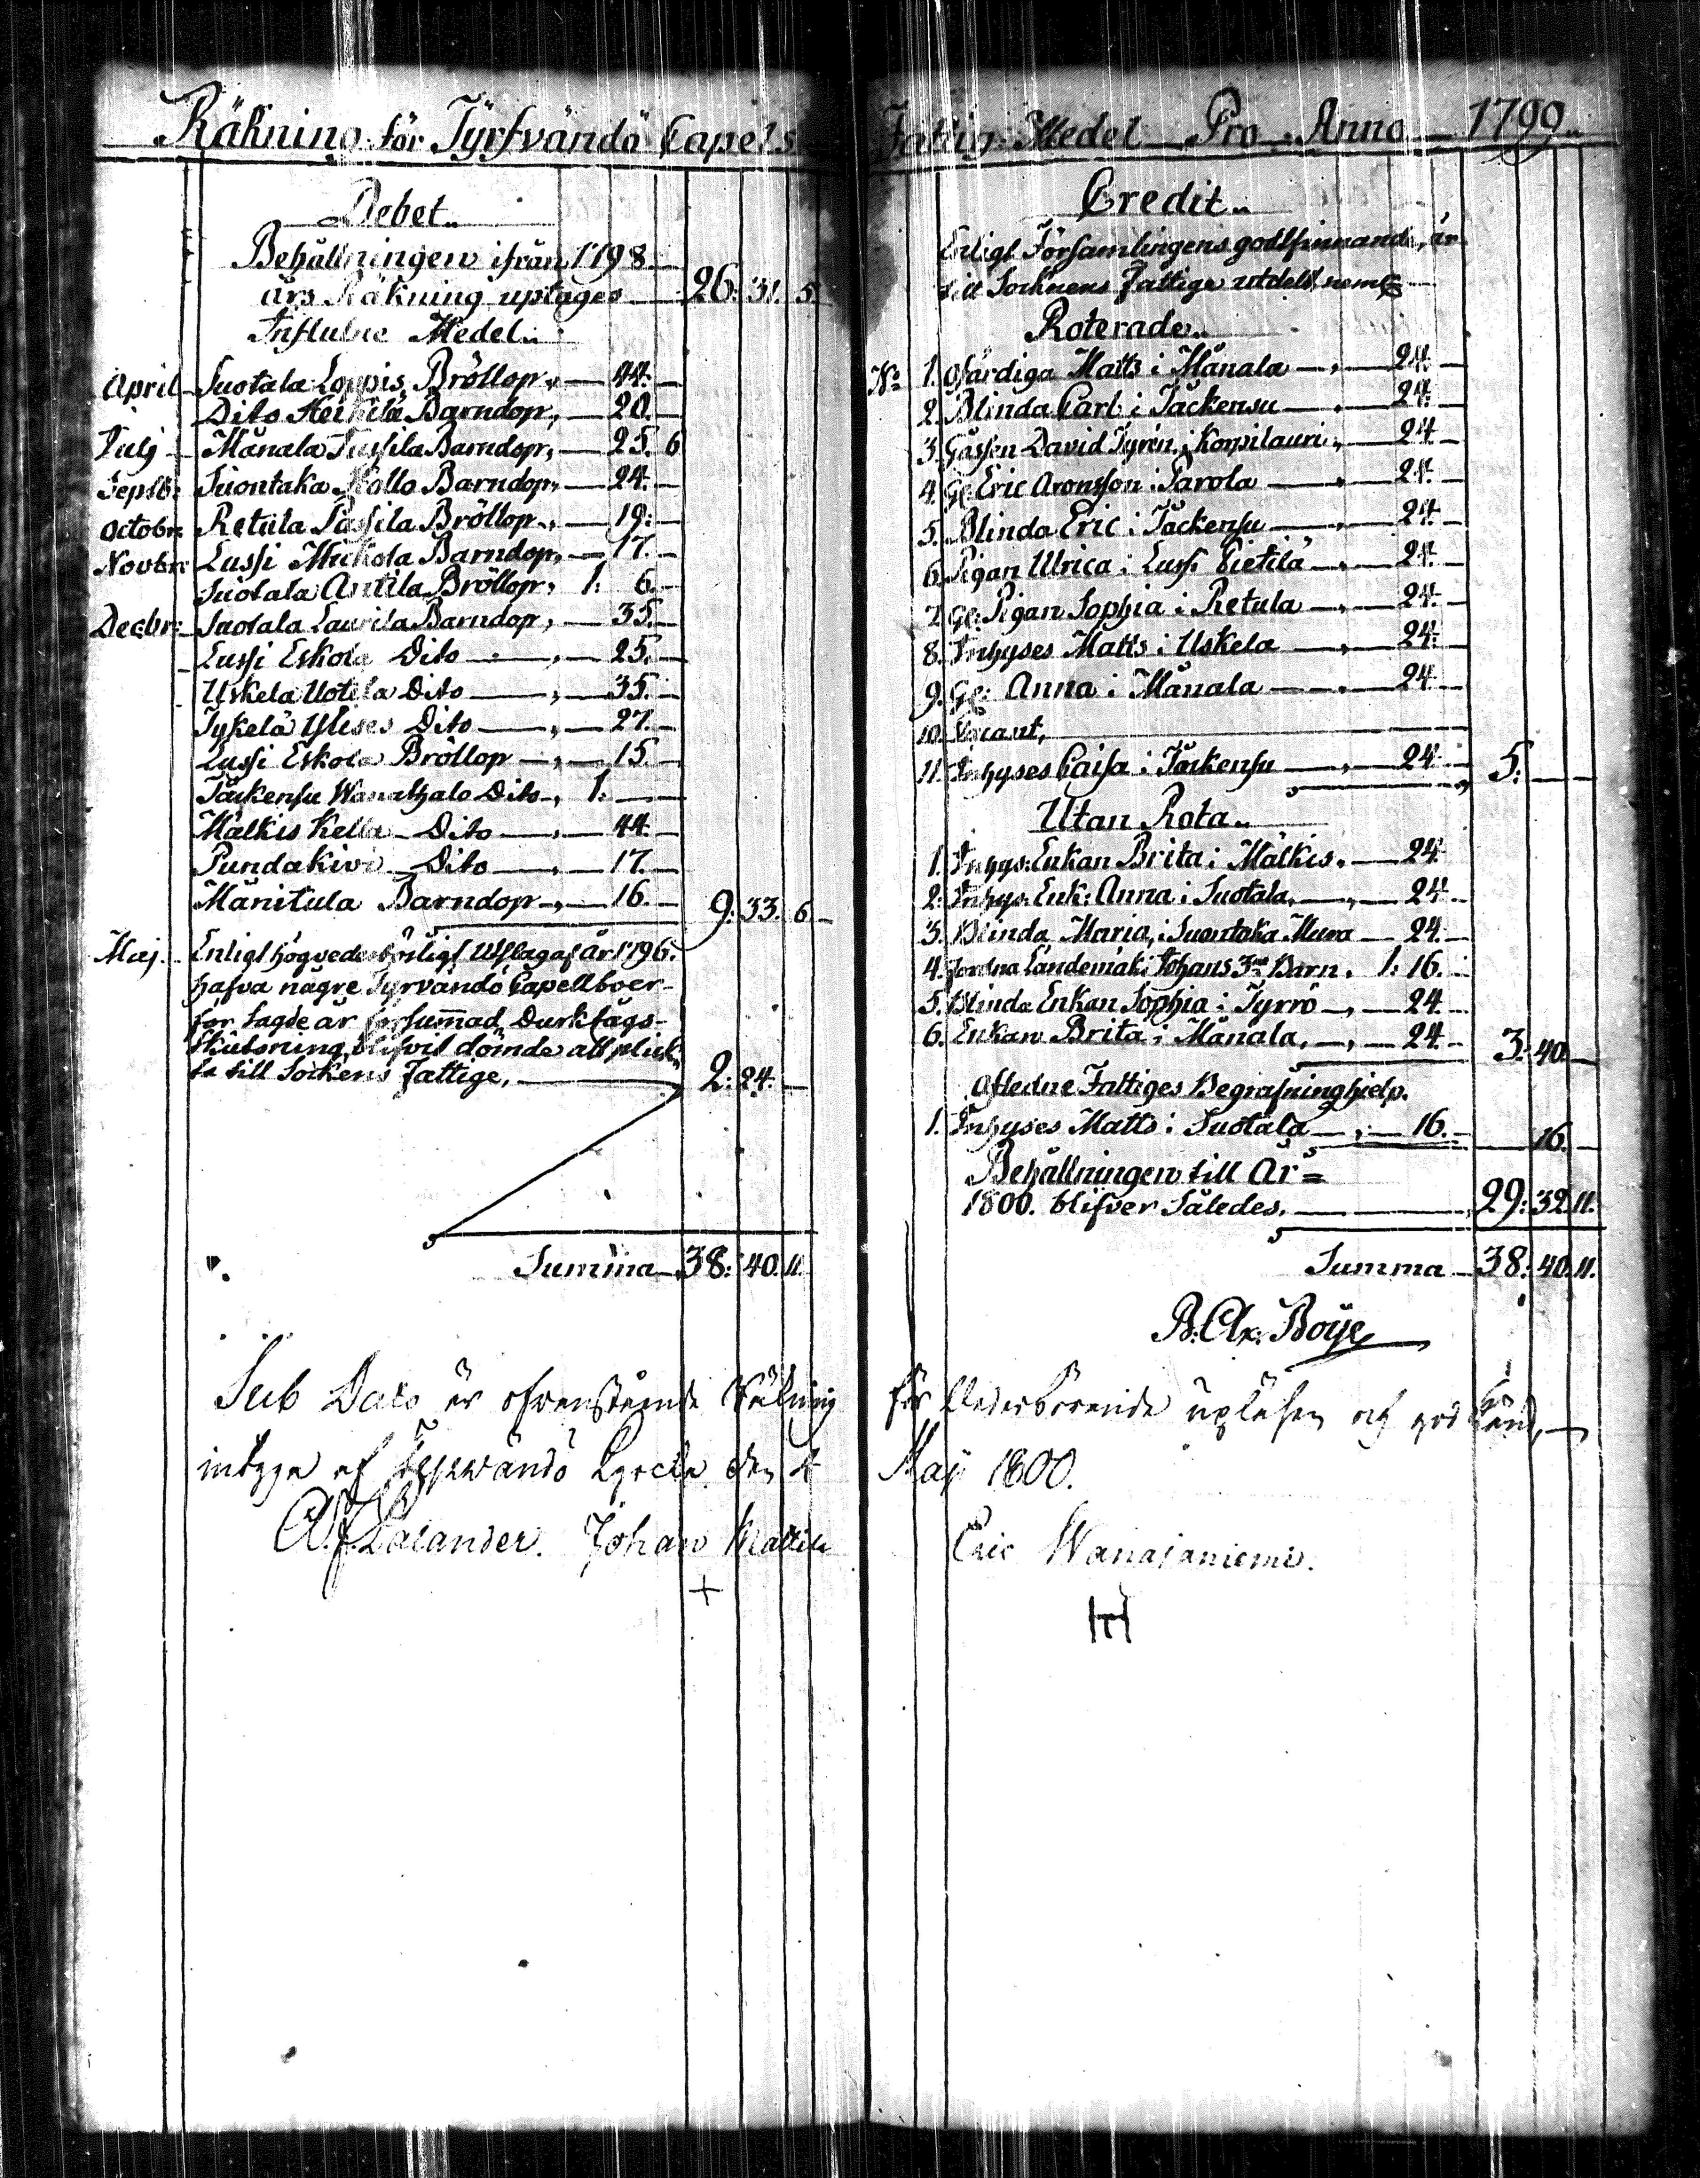 Räkning för Tyrfvändö Capels Fattig-Medel Pro Anno 1799.
Debet.
Behållningen ifrån 1798
års Räkning uptages 26. 31. 5.
Influtne Medel.
April Suotala Loppis Bröllop, 44.
Dito Heikilä Barndop, 20.
Julij Mänala Jussila Barndop, 25. 6
Septbr: Suontaka Kallo Barndop, 24.
Octobr: Retula Passila Bröllop, 19.
Novbr: Lussi Muckola Barndop, 17.
Suotala Antila Bröllop, 1. 6.
Decbr: Suotala Laurila Barndop, 35.
Lussi Eskola Dito 25.
Uskela Uotila Dito 35.
Tykelä Ylises Dito 27.
Lussi Eskola Bröllop 15.
Täckensu Wanathalo Dito, 1.
Mälkis Kella Dito 44.
Pundakivi Dito 17.
Mänikula Barndop 16. 9. 33. 6
Maj. Enligt högvederbörligt Utslag af år 1796.
hafva någre Tyrvändö Capellboer
för sagde år försummad Durktågs-
Skutsning, blifvit dömde att plick-
ta till Sockens Fattige, 2. 24.
Summa 38. 40. 11.
Credit.
Enligt Församlingens godtfinnande, är
till Socknens Fattige utdelt neml:
Roterade.
No 1. Ofärdiga Matts i Mänala 24.
2. Blinda Carl i Täckensu 24.
3. Gåssen David Tyrén i Korpilauri 24
4. Gl: Eric Aronsson i Parola 24.
5. Blinda Eric i Täckensu 24.
6. Pigan Ulrica i Lussi Pietilä 24.
7. Gl: Pigan Sophia i Retula 24.
8. Inhyses Matts i Uskela 24.
9. Gl: Anna i Mänala 24
10. Vacant,
11. Inhyses Caisa i Täckensu 24. 5.
Utan Rota.
1. Inhys: Enkan Brita i Mälkis. 24.
2. Inhys: Enk: Anna i Suotala, 24
3. Blinda Maria, i Suontaka Mura 24.
4. Jordna Landemäki Johans 3ne Barn. 1. 16.
5. Blinda Enkan Sophia i Tyrrö 24.
6. Enkan Brita i Mänala, 24. 3. 40.
Afledne Fattiges Begrafninghielp.
1. Inhyses Matts i Suotala 16. 16.
Behållningen till År
1800. blifver Således, 29. 32. 11.
Summa 38. 40. 11.
B: Ax: Böije
Sub Dato är ofvanstående Räkning för Vederbörande upläsen och god känd,
intyga af Tyrwändö Kyrcka den 4 Maji 1800.
A. J. Lalander. Johan Mattila Eric Wanajaniemi.
+